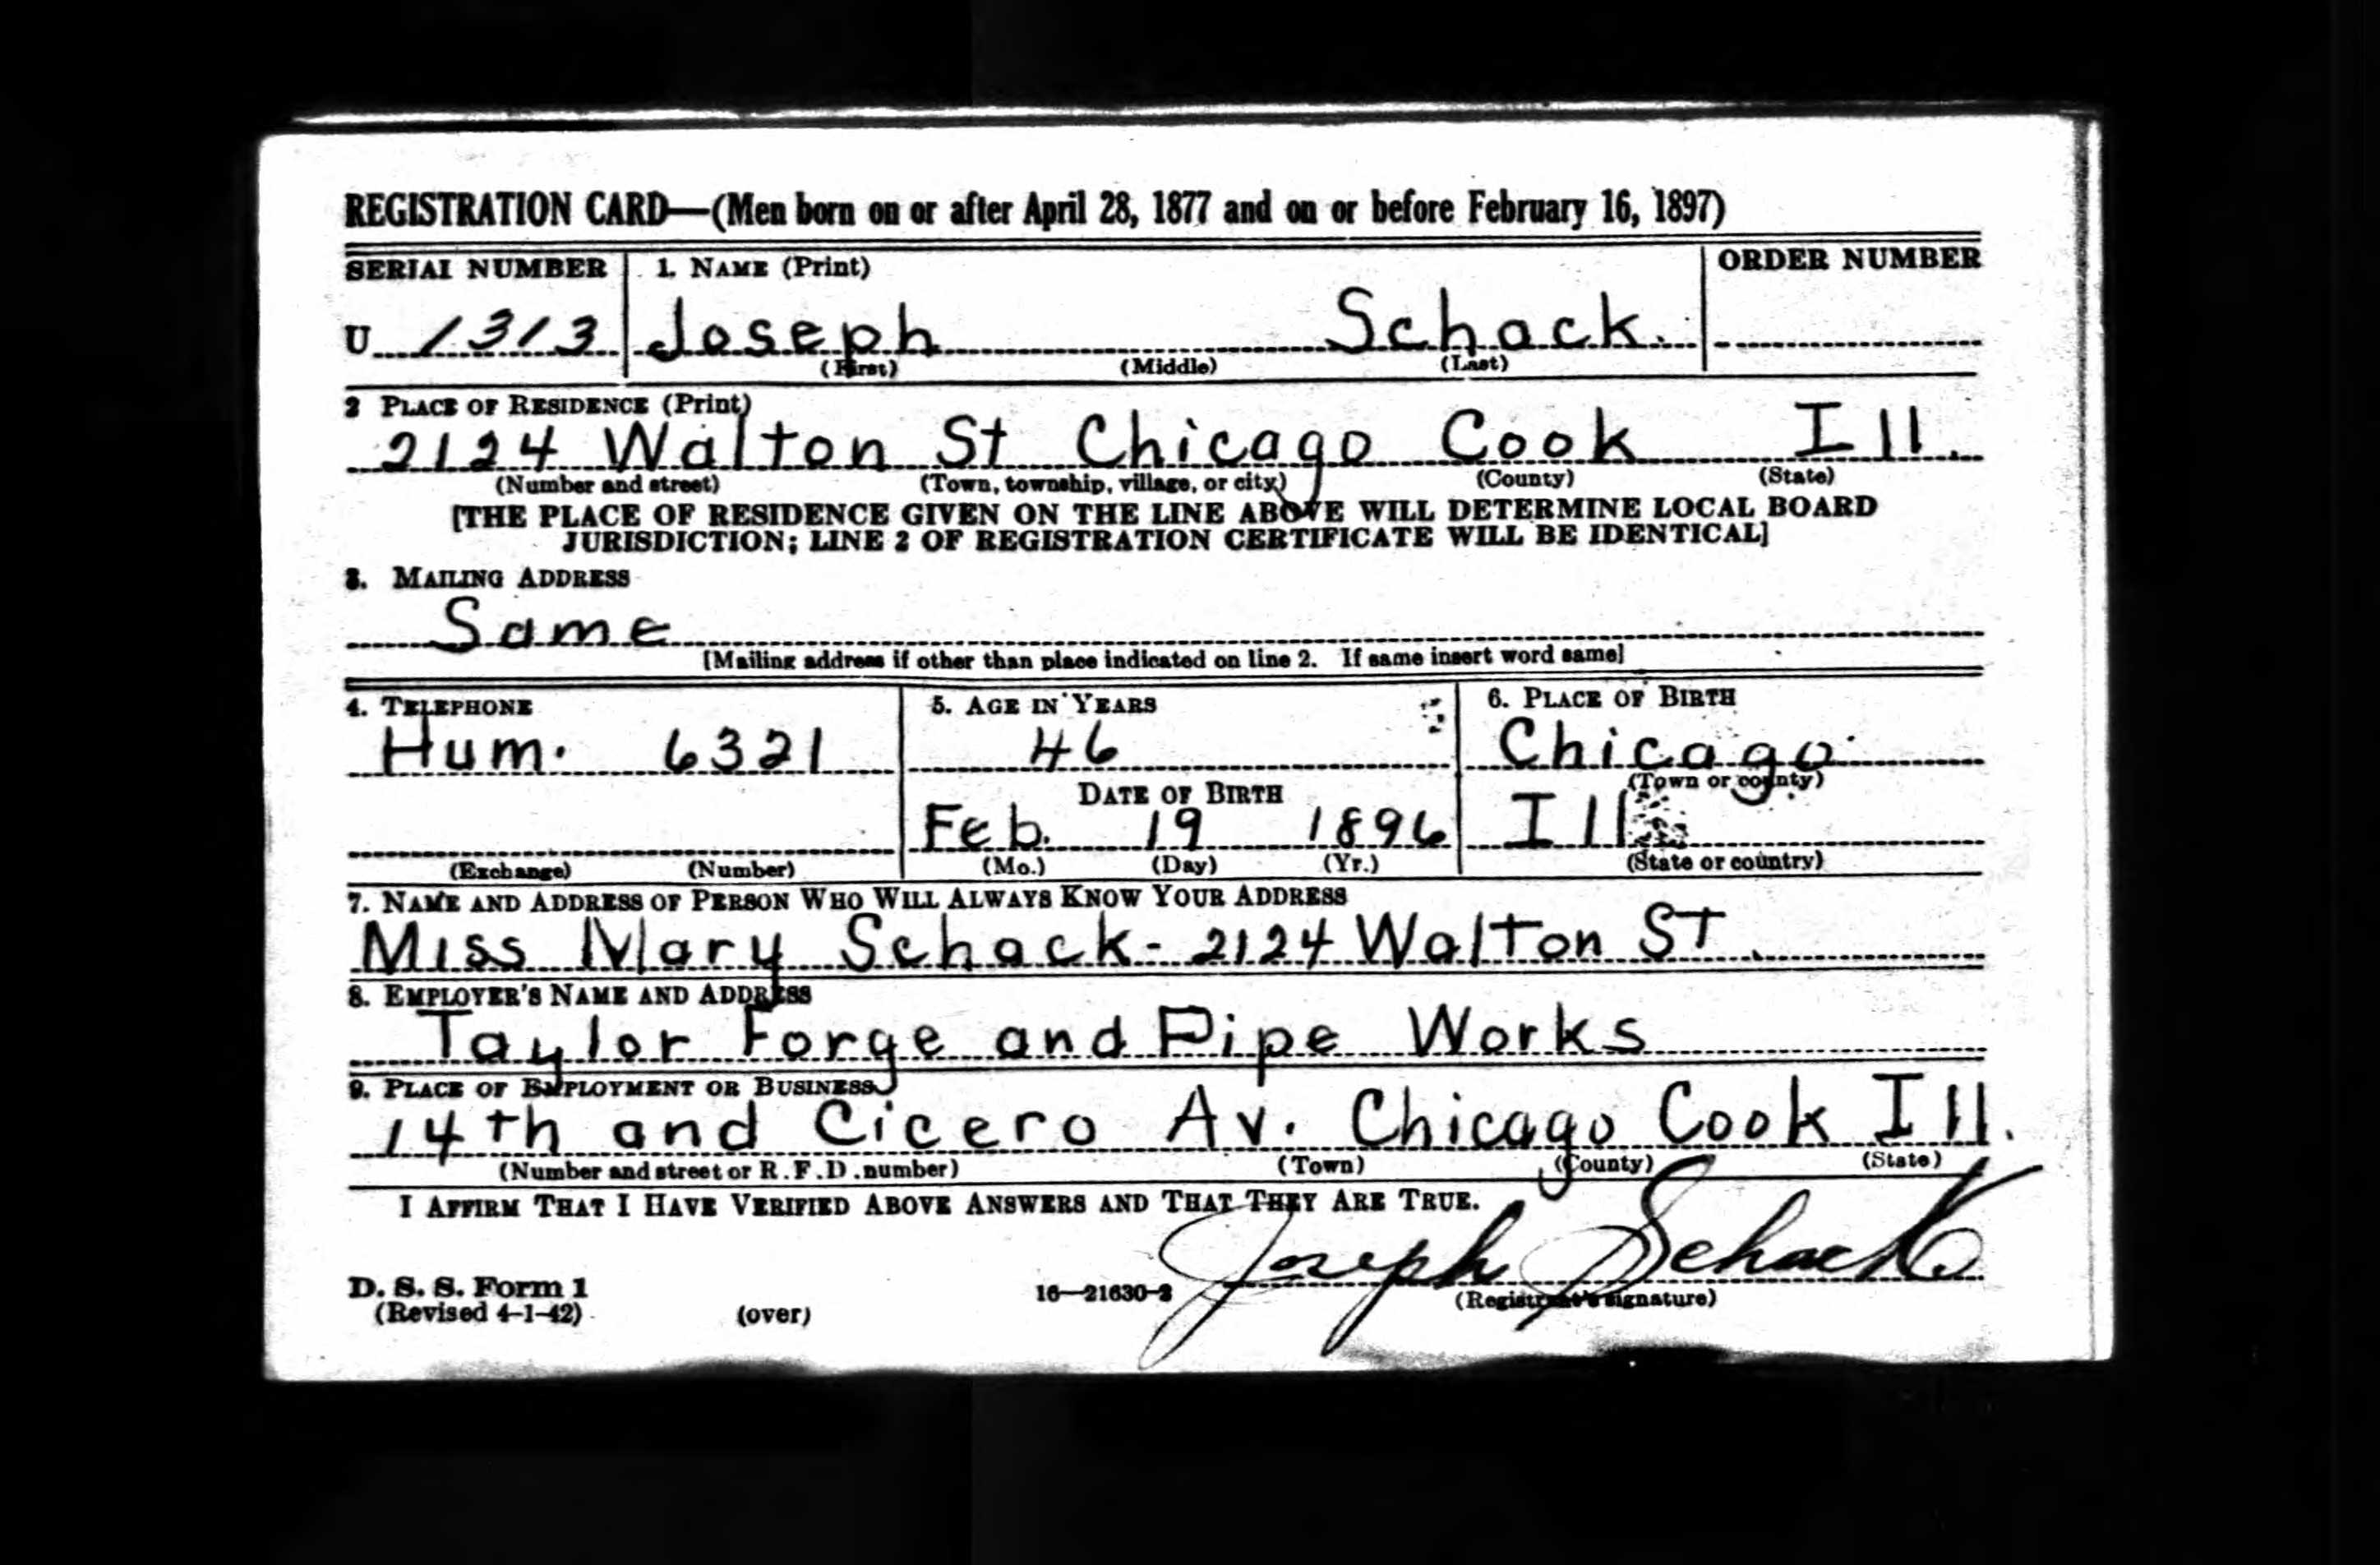 REGISTRATION CARD—(Men born on or after April 28, 1877 and on or before February 16, 1897)
SERIAL NUMBER 1. NAME (Print) ORDER NUMBER
U 1313 Joseph Schack.
(First) (Middle) (Last)
2 PLACE OF RESIDENCE (Print)
2124 Walton St Chicago Cook Ill.
(Number and street) (Town, township, village, or city) (County) (State)
[THE PLACE OF RESIDENCE GIVEN ON THE LINE ABOVE WILL DETERMINE LOCAL BOARD
JURISDICTION; LINE 2 OF REGISTRATION CERTIFICATE WILL BE IDENTICAL]
3. MAILING ADDRESS
Same
[Mailing address if other than place indicated on line 2. If same insert word same]
4. TELEPHONE 5. AGE IN YEARS 6. PLACE OF BIRTH
Hum. 6321 46 Chicago
(Town or county)
DATE OF BIRTH
Feb. 19 1896 Ill
(Exchange) (Number) (Mo.) (Day) (Yr.) (State or country)
7. NAME AND ADDRESS OF PERSON WHO WILL ALWAYS KNOW YOUR ADDRESS
Miss Mary Schack - 2124 Walton ST.
8. EMPLOYER'S NAME AND ADDRESS
Taylor Forge and Pipe Works
9. PLACE OF EMPLOYMENT OR BUSINESS
14th and Cicero Av. Chicago Cook Ill.
(Number and street or R. F. D. number) (Town) (County) (State)
I AFFIRM THAT I HAVE VERIFIED ABOVE ANSWERS AND THAT THEY ARE TRUE.
Joseph Schack
D. S. S. Form 1
(Revised 4-1-42) (over) 16—21630-2 (Registrant's signature)